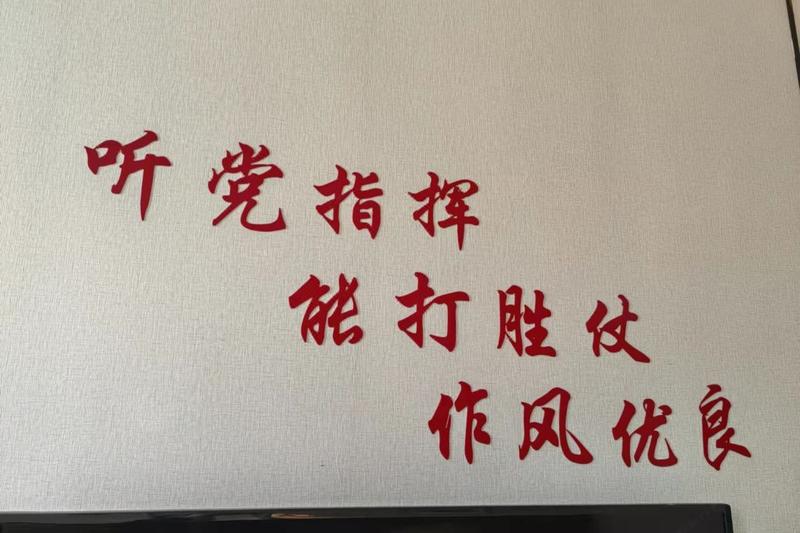 听党指挥
能打胜仗
作风优良